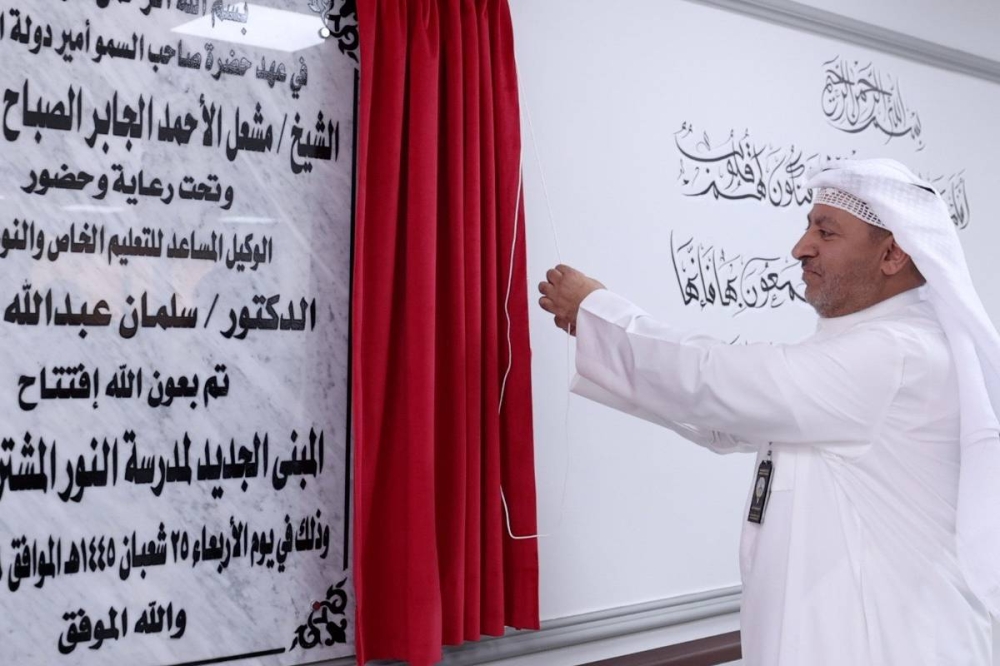 بسم الله الرحمن
في عهد حضرة صاحب السمو أمير دولة
الشيخ / مشعل الأحمد الجابر الصباح
وتحت رعاية وحضور
الوكيل المساعد للتعليم الخاص والنو
الدكتور / سلمان عبدالله
تم بعون الله إفتتاح
المبنى الجديد لمدرسة النور المشتر
وذلك في يوم الأربعاء ٢٥ شعبان ١٤٤٥هـ الموافق
والله الموفق
بسم الله الرحمن الرحيم
فتكون لهم قلوب
يسمعون بها فإنها